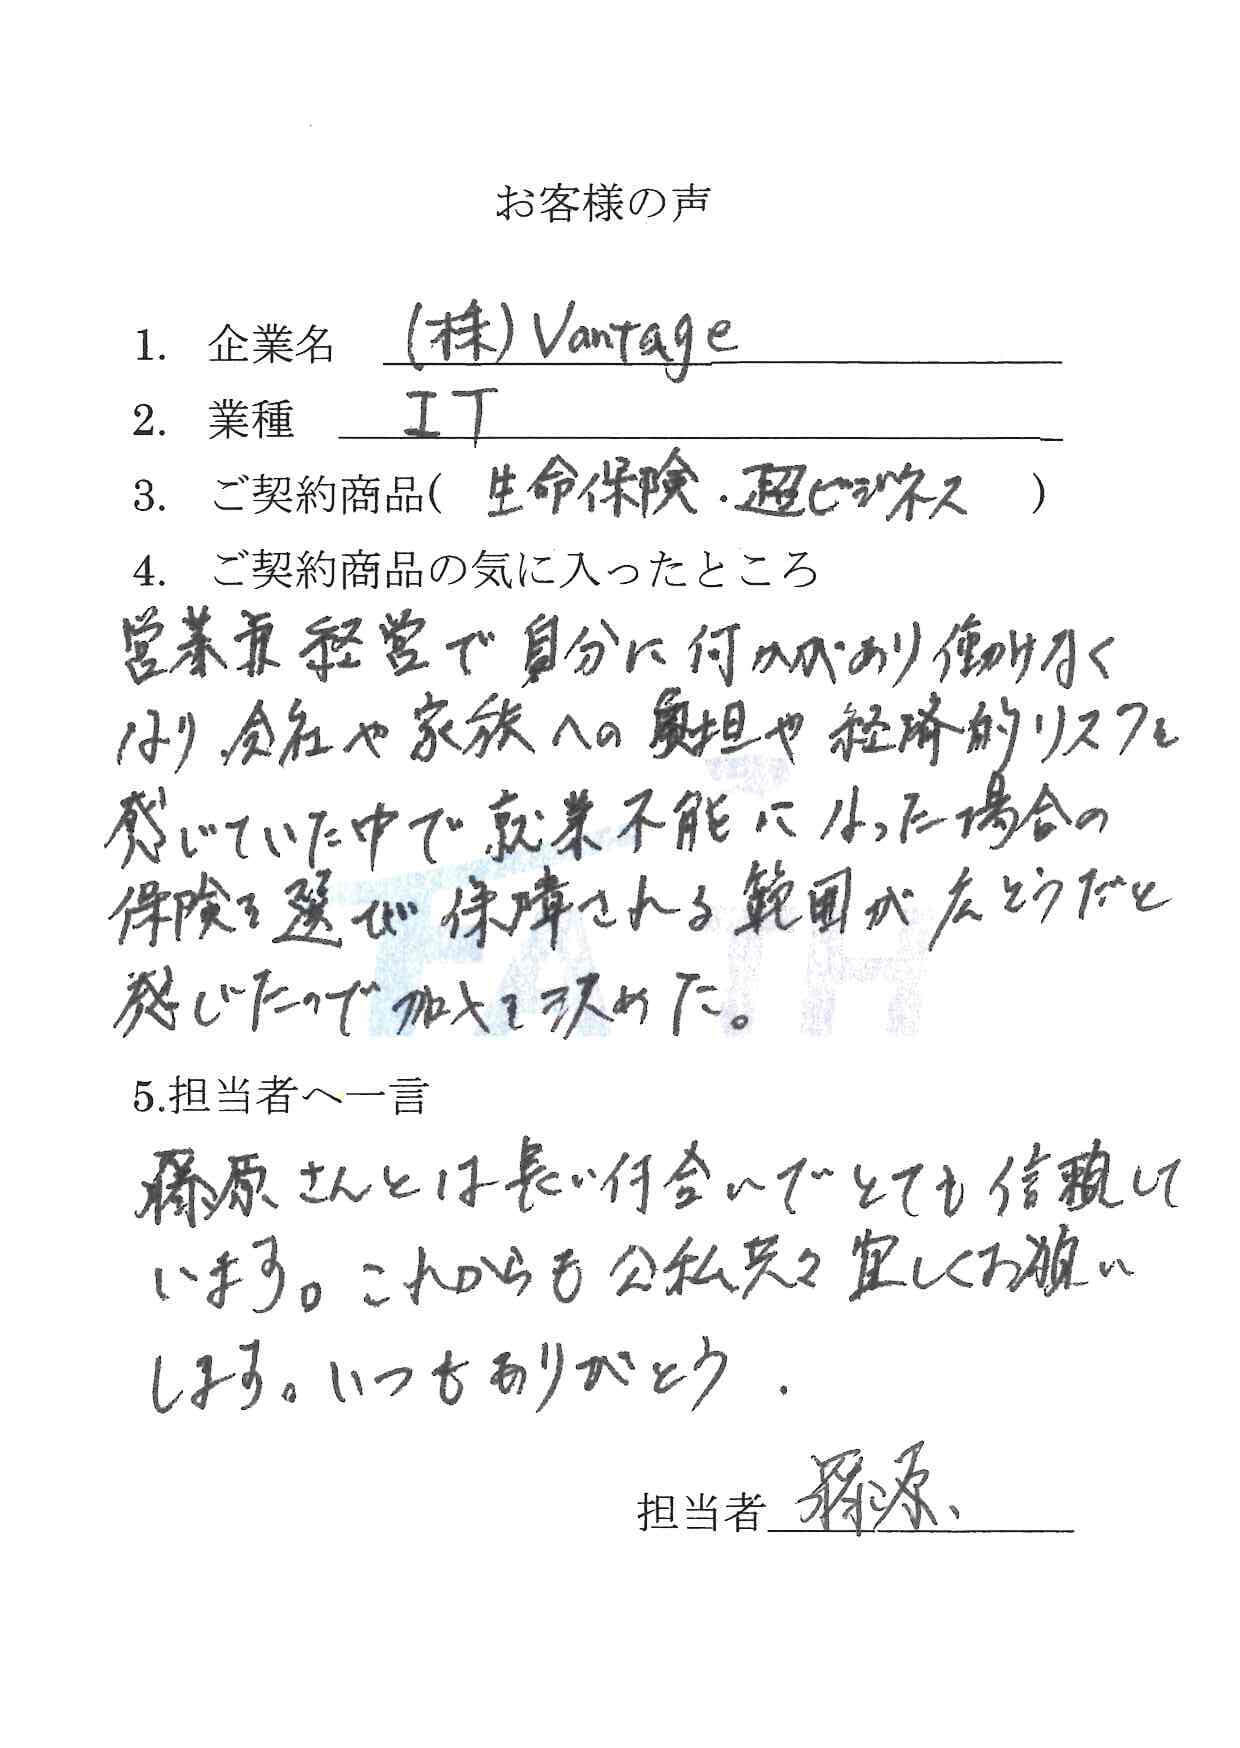 お客様の声
1. 企業名 (株)Vantage
2. 業種 IT
3. ご契約商品( 生命保険・超ビジネス )
4. ご契約商品の気に入ったところ
営業兼経営で自分に何かがあり働けなく
なり、会社や家族への負担や経済的リスクを
感じていた中で就業不能になった場合の
保険を選び保障される範囲が広そうだと
感じたので加入を決めた。
5.担当者へ一言
藤原さんとは長い付合いでとても信頼して
います。これからも公私共々宜しくお願い
します。いつもありがとう.
担当者 藤原